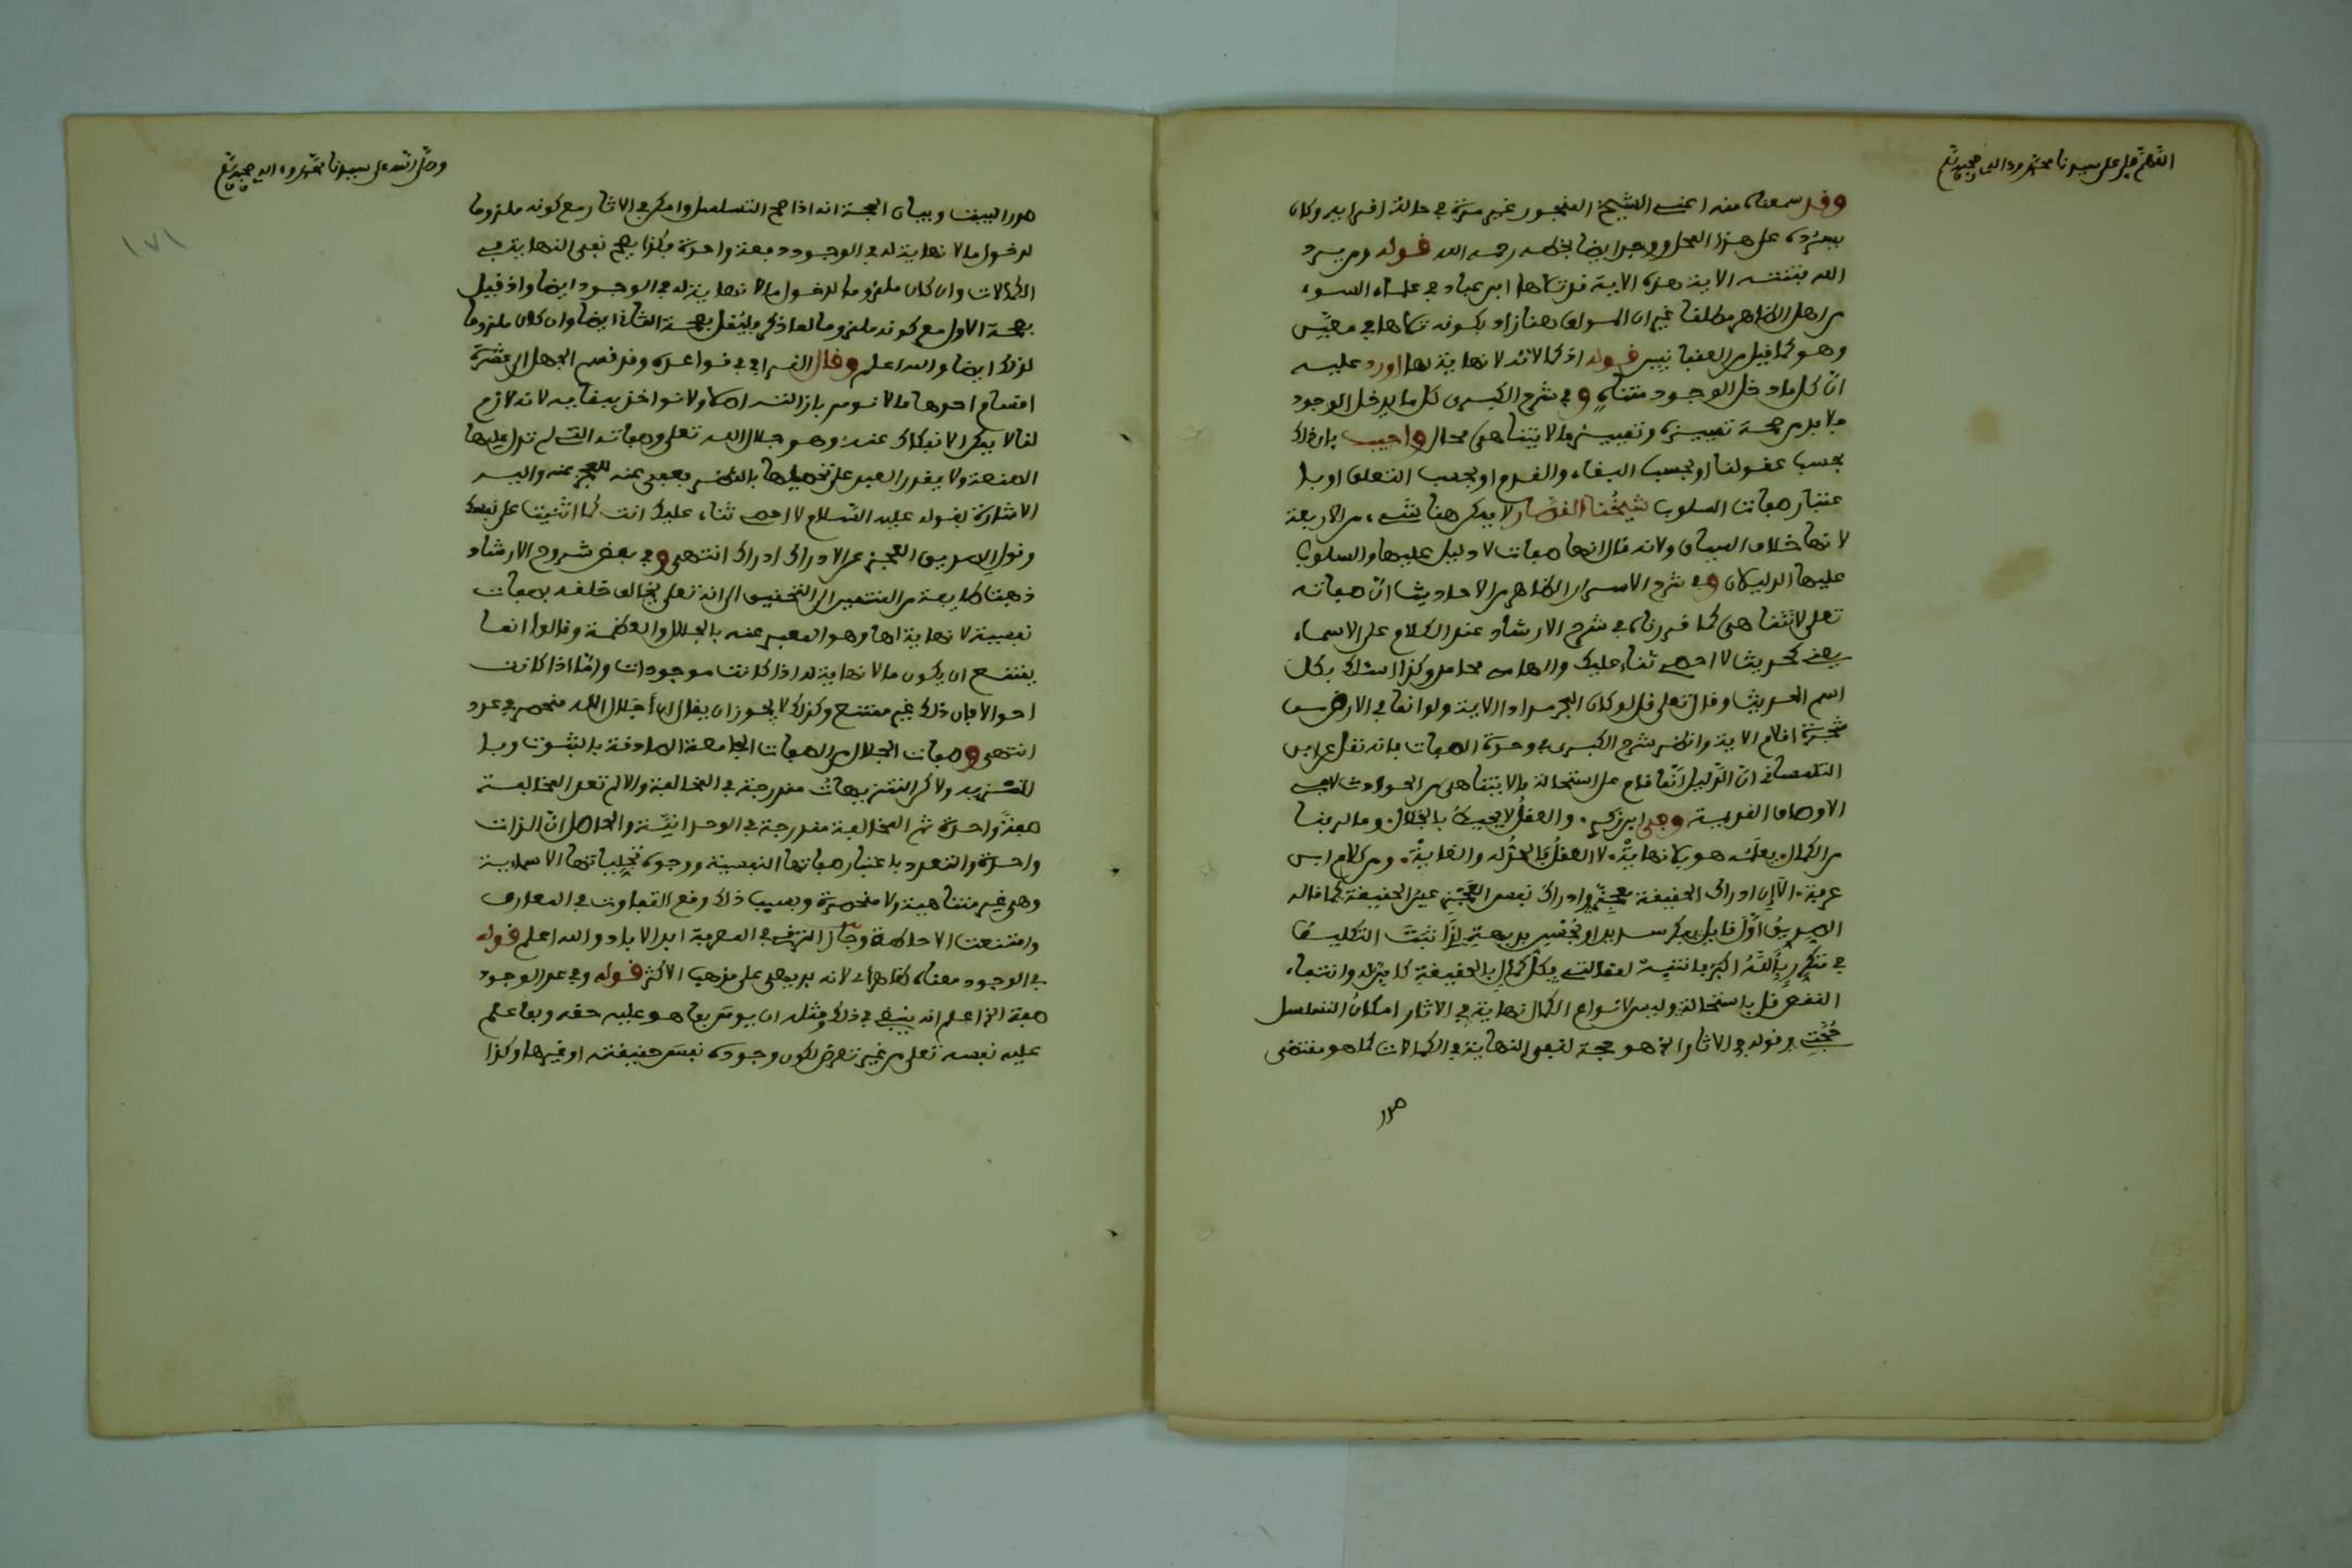 اللهم صل على سيدنا محمد وءاله وصحبه
وقد سمعناه منه اعني الشيخ المنجور غير مرة في حالة اقرايه وكان
يسرده على هذا المحل ووجد ايضا بخطه رحمه الله قوله ومن يرد
الله فتنته الاية هذه الاية قد تلاها ابن عباد في علماء السوء
من اهل الظاهر مطلقا غير ان المؤلف هنا زاد بكونه تلاها في معين
وهو كما قيل من العقبانيين قوله اذ كمالاته لا نهاية لها اورد عليه
ان كل ما دخل الوجود متناه وفي شرح الكبرى كل ما يدخل الوجود
فلا بد من صحة تمييزه وتمييز ما لا يتناهى محال واجيب بان ذلك
بحسب عقولنا او بحسب البقاء والقدم او بحسب التعلق او با
عتبار صفات السلوب شيخنا القصار لا يمكن هنا شيء من الاربعة
لانها خلاف السياق ولانه قال انها صفات لا دليل عليها والسلوب
عليها الدليلان وفي شرح الاسرار الظاهر من الاحاديث ان صفاته
تعلى لا تتناهى كما قررناه في شرح الارشاد عند الكلام على الاسماء
يعني كحديث لا احصي ثناء عليك والهامي محامد وكذا اسئلك بكل
اسم الحديث وقال تعلى قل لو كان البحر مدادا الاية ولو انما في الارض من
شجرة اقلام الاية وانظر شرح الكبرى في وحدة الصفات فانه نقل عن ابن
التلمساني ان الدليل انما قام على استحالة ما لا يتناهى من الحوادث لا في
الاوصاف القديمة وفي ابن زكري والعقل لا يحيط بالجلال وما لربنا
من الكمال يعلمه هو بلا نهاية لا العقل بالحد له والغاية ومن كلام ابن
عرفة الا ان ادراك الحقيقة معجز وادراك نفس العجز عين الحقيقة كما قاله
الصديق اول قايل
قل باستحالة وليس لانواع الكمال نهاية في الاثار امكان التسلسل
حجتي وقوله في الاثار الخ هو حجة لنفي النهاية في الكمالات كما هو مقتضى
صدر
وصلى الله على سيدنا محمد وءاله وصحبه
١٧١
صدر البيت وبيان الحجة انه اذا صح التسلسل وامكن في الاثار مع كونه ملزوما
لدخول ما لا نهاية له في الوجود دفعة واحدة فكذا يصح نفي النهاية في
الكمالات وان كان ملزوما لدخول ما لا نهاية له في الوجود ايضا واذ قيل
بصحة الاول مع كونه ملزوما لما ذكر فليقل بصحة الثاني ايضا وان كان ملزوما
لذلك ايضا والله اعلم وقال القرافي في قواعده وقد قسم الجهل الى عشرة
اقسام احدها ما لا نومر بازالته اصلا ولا نواخذ ببقايه لانه لازم
لنا لا يمكن الانفكاك عنه وهو جلال الله تعلى وصفاته التي لم تدل عليها
الصنعة ولا يقدر العبد على تحصيلها بالنظر فعفى عنه للعجز عنه واليه
الاشارة بقوله عليه السلام لا احصي ثناء عليك انت كما اثنيت على نفسك
وقول الصديق العجز عن الادراك ادراك انتهى وفي بعض شروح الارشاد
ذهبت طايفة من المنتمين الى التحقيق الى انه تعلى يخالف خلقه بصفات
نفسية لا نهاية لها وهو المعبر عنه بالجلال والعظمة وقالوا انما
يمتنع ان يكون ما لا نهاية له اذا كانت موجودات واما اذا كانت
احوالا فان ذلك غير ممتنع وكذلك لا يجوز ان يقال ان اجلال الله منحصر في عدد
انتهى وصفات الجلال من الصفات الجامعة الصادقة بالثبوت وبا
لتنزيه ولاكن التنزيهات مندرجة في المخالفة والا لم تعد المخالفة
صفة واحدة ثم المخالفة مندرجة في الوحدانية والحاصل ان الذات
واحدة والتعدد باعتبار صفاتها النفسية ووجوه تجلياتها الاسمايية
وهي غير متناهية ولا منحصرة وبسبب ذلك وقع التفاوت في المعارف
وامتنعت الاحاطة وجاز الترقي في المعرفة ابد الاباد والله اعلم قوله
في الوجود معناه ظاهر اي لانه بديهي على مذهب الاكثر قوله وفي عد الوجود
صفة الخ اعلم انه ينبغي في ذلك ومثله ان يومن بما هو عليه حقه وبما علم
عليه نفسه تعلى من غير تعرض لكون وجوده نفس حقيقته او غيرها وكذا